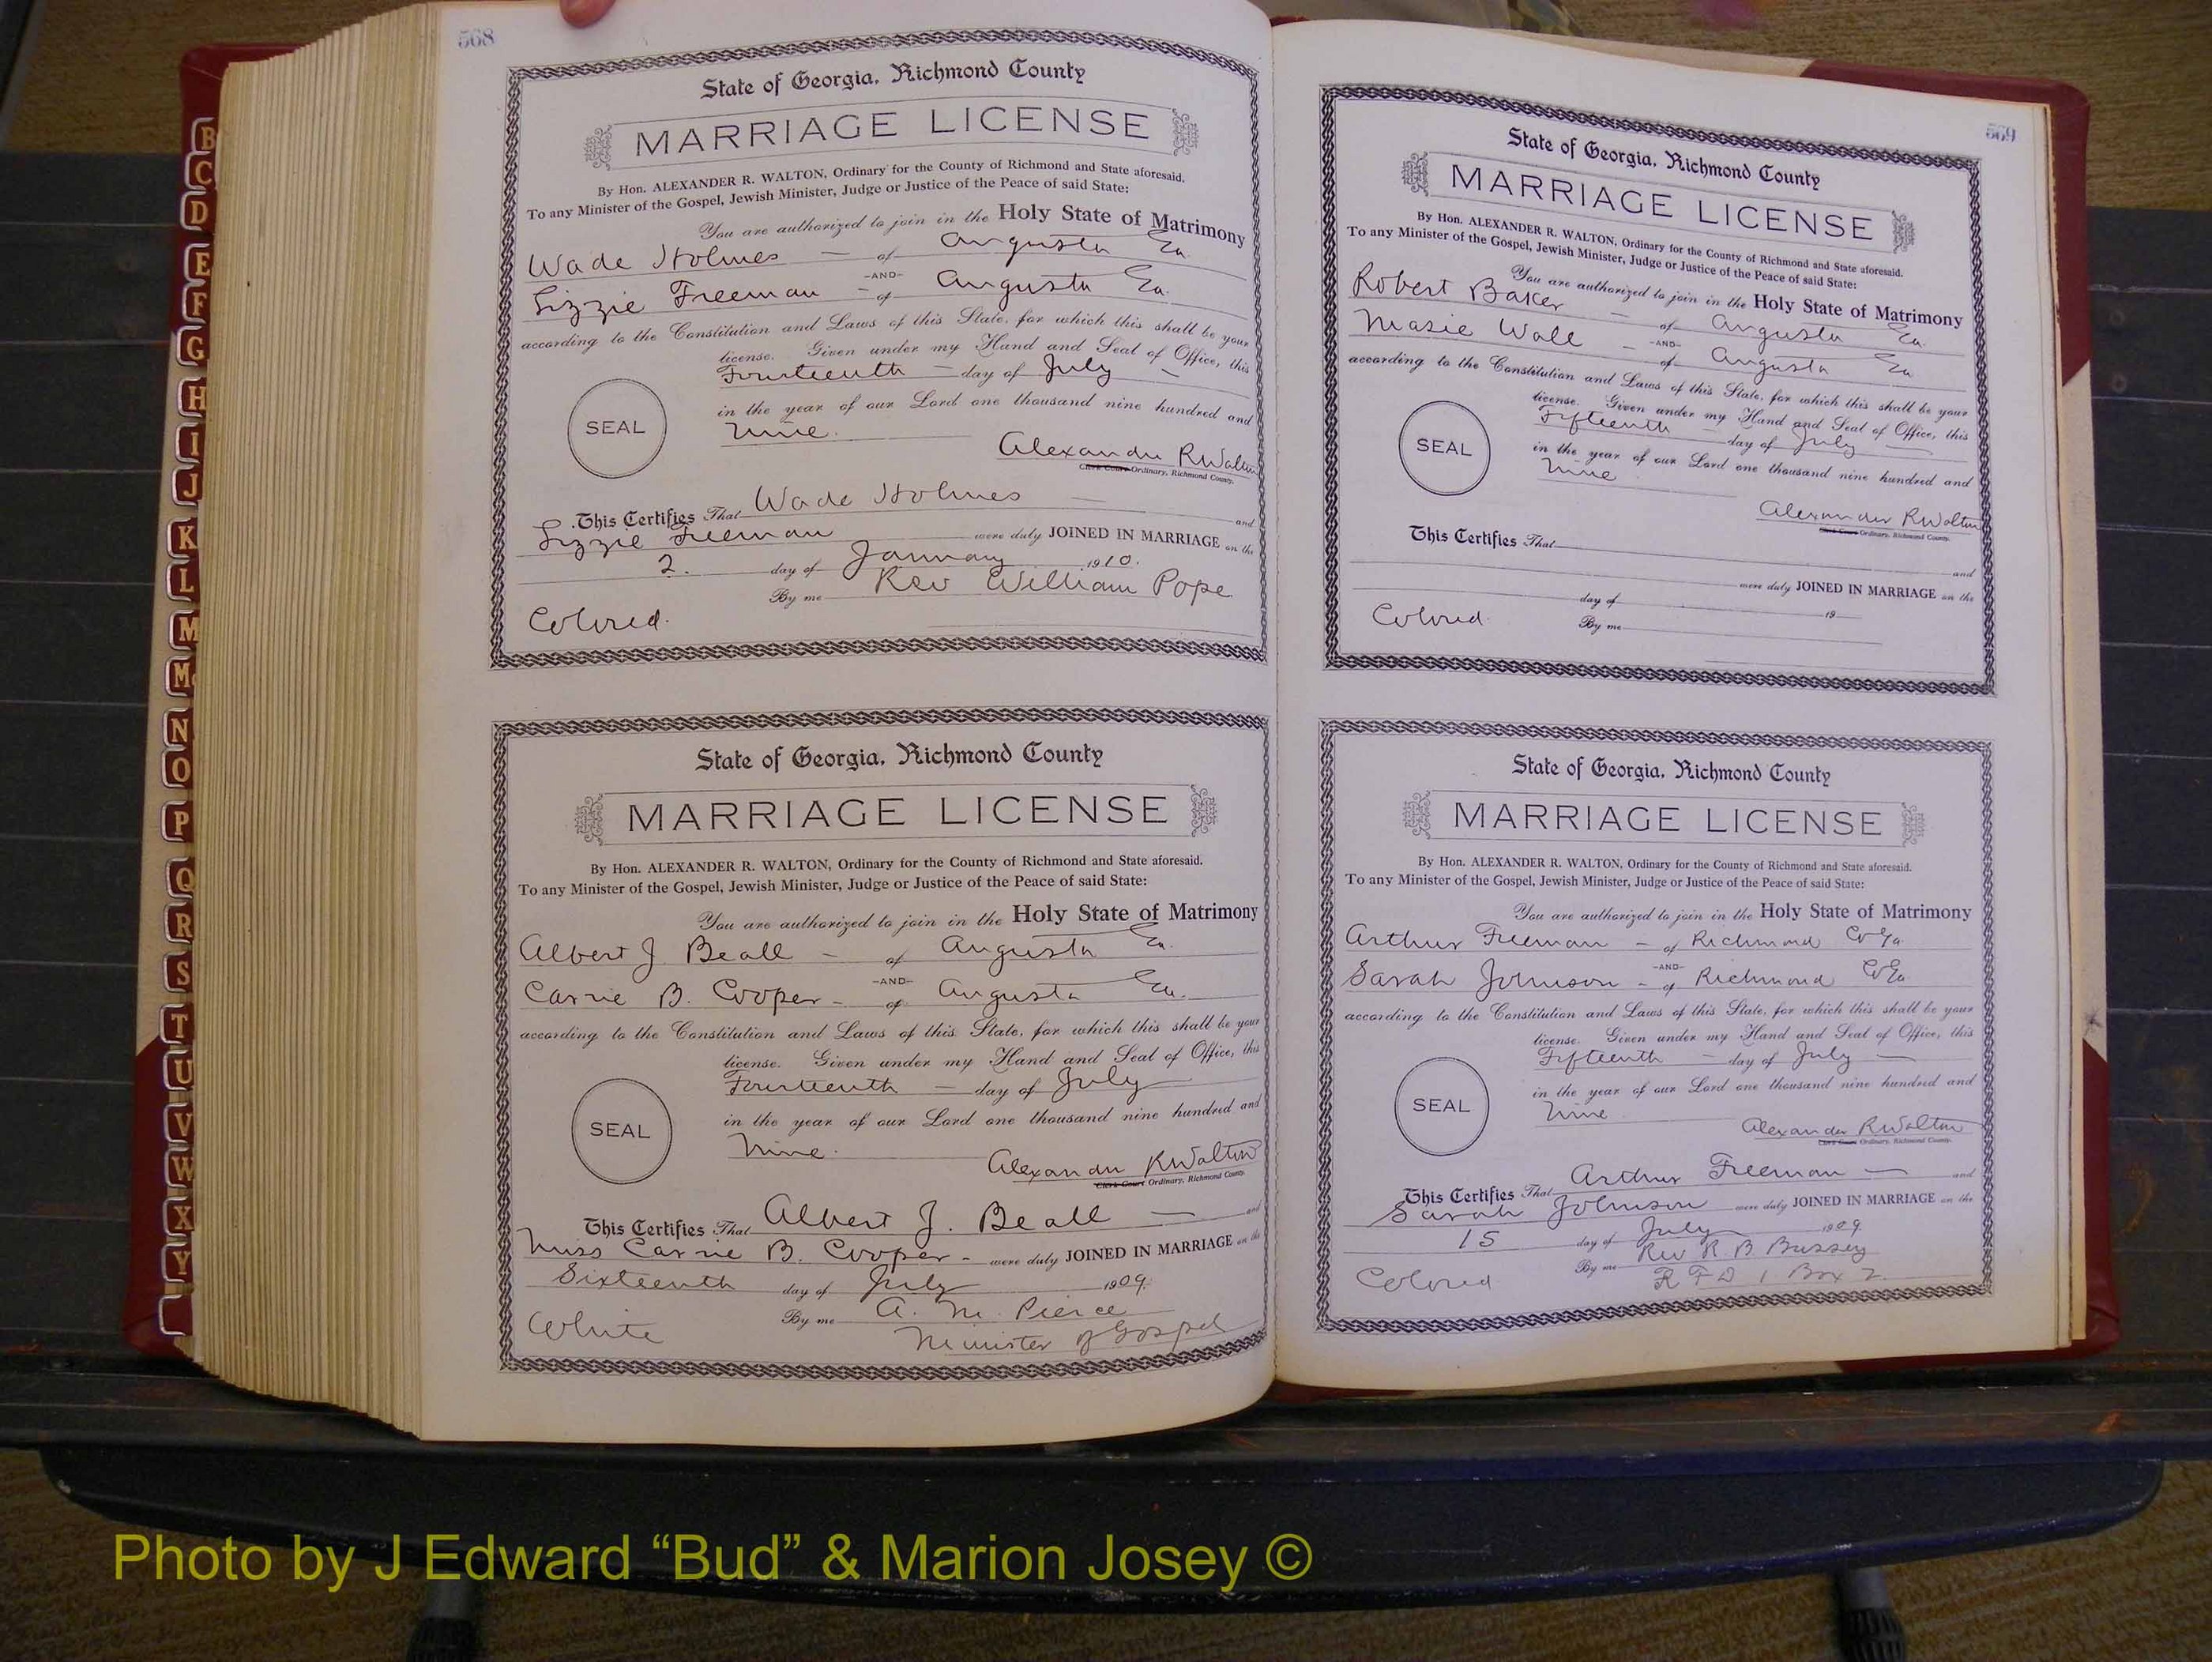 568
State of Georgia, Richmond County
MARRIAGE LICENSE
By Hon. ALEXANDER R. WALTON, Ordinary for the County of Richmond and State aforesaid.
To any Minister of the Gospel, Jewish Minister, Judge or Justice of the Peace of said State:
You are authorized to join in the Holy State of Matrimony
Wade Holmes — of Augusta Ga.
-AND-
Lizzie Freeman — of Augusta Ga.
according to the Constitution and Laws of this State, for which this shall be your
license. Given under my Hand and Seal of Office, this
Fourteenth — day of July —
in the year of our Lord one thousand nine hundred and
SEAL
nine.
Alexander R Walton
Clerk Court Ordinary, Richmond County.
This Certifies That Wade Holmes — and
Lizzie Freeman were duly JOINED IN MARRIAGE on the
2. day of January 1910.
By me Rev William Pope
Colored.
State of Georgia, Richmond County
MARRIAGE LICENSE
By Hon. ALEXANDER R. WALTON, Ordinary for the County of Richmond and State aforesaid.
To any Minister of the Gospel, Jewish Minister, Judge or Justice of the Peace of said State:
You are authorized to join in the Holy State of Matrimony
Albert J Beall — of Augusta Ga.
-AND-
Carrie B. Cooper — of Augusta Ga.
according to the Constitution and Laws of this State, for which this shall be your
license. Given under my Hand and Seal of Office, this
Fourteenth — day of July
in the year of our Lord one thousand nine hundred and
SEAL
nine.
Alexander R Walton
Clerk Court Ordinary, Richmond County.
This Certifies That Albert J. Beall — and
Miss Carrie B. Cooper — were duly JOINED IN MARRIAGE on the
Sixteenth day of July 1909.
By me A. M. Pierce
White
Minister of Gospel
569
State of Georgia, Richmond County
MARRIAGE LICENSE
By Hon. ALEXANDER R. WALTON, Ordinary for the County of Richmond and State aforesaid.
To any Minister of the Gospel, Jewish Minister, Judge or Justice of the Peace of said State:
You are authorized to join in the Holy State of Matrimony
Robert Baker — of Augusta Ga.
-AND-
Masie Wall — of Augusta Ga
according to the Constitution and Laws of this State, for which this shall be your
license. Given under my Hand and Seal of Office, this
Fifteenth day of July —
in the year of our Lord one thousand nine hundred and
SEAL
nine
Alexander R Walton
Clerk Court Ordinary, Richmond County.
This Certifies That and
were duly JOINED IN MARRIAGE on the
day of 19
By me
Colored.
State of Georgia, Richmond County
MARRIAGE LICENSE
By Hon. ALEXANDER R. WALTON, Ordinary for the County of Richmond and State aforesaid.
To any Minister of the Gospel, Jewish Minister, Judge or Justice of the Peace of said State:
You are authorized to join in the Holy State of Matrimony
Arthur Freeman — of Richmond Co Ga.
-AND-
Sarah Johnson — of Richmond Co Ga
according to the Constitution and Laws of this State, for which this shall be your
license. Given under my Hand and Seal of Office, this
Fifteenth — day of July —
in the year of our Lord one thousand nine hundred and
SEAL
nine
Alexander R Walton
Clerk Court Ordinary, Richmond County.
This Certifies That Arthur Freeman — and
Sarah Johnson were duly JOINED IN MARRIAGE on the
15 day of July 1909
By me Rev R. B Bussey
Colored
R F D 1 Box 2.
B
C
D
E
F
G
H
I
J
K
L
M
Mc
N
O
P
Q
R
S
T
U
V
W
X
Y
Photo by J Edward “Bud” & Marion Josey ©